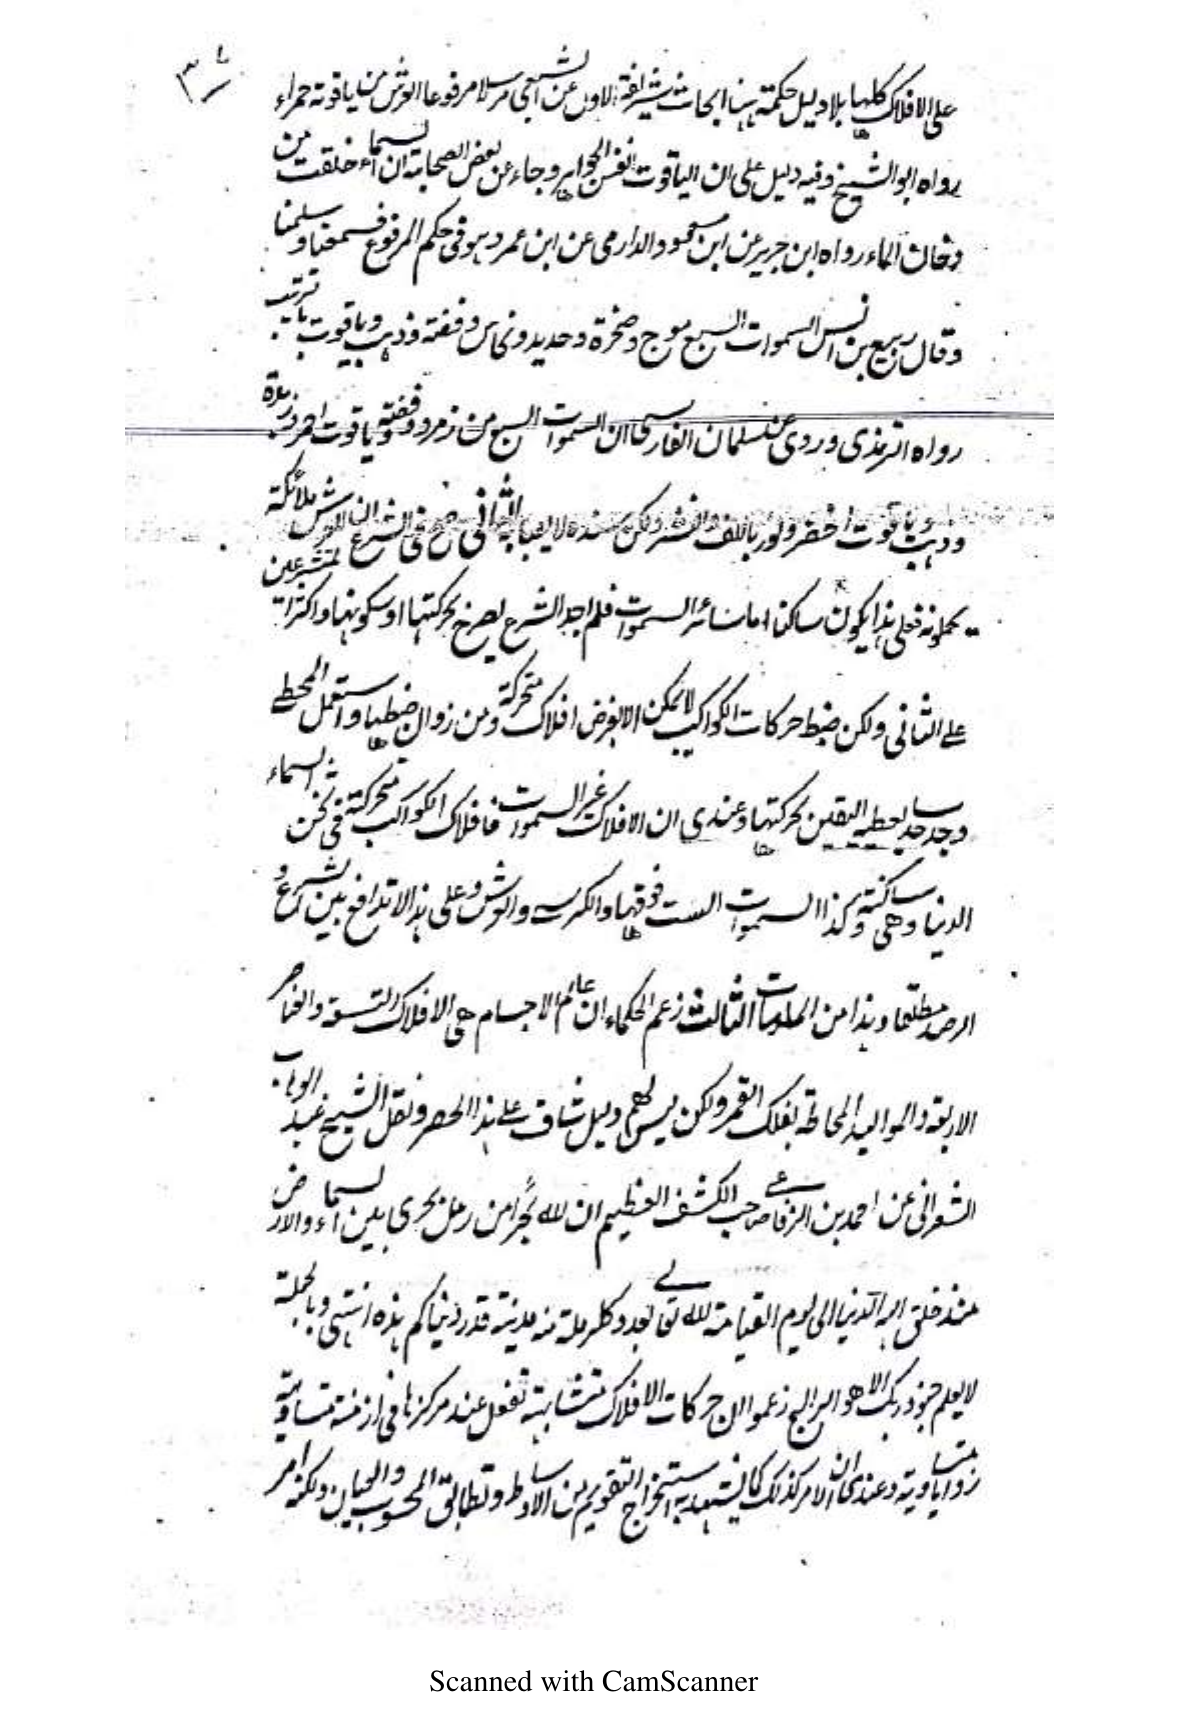 على الافلاك كلها بلا دليل حكمة ههنا ابحاث شريفة الاول عن الشعبي مرسلا مرفوعا العرش من ياقوتة حمراء
رواه ابو الشيخ وفيه دليل على ان الياقوت انفس الجواهر وجاء عن بعض الصحابة ان السماء خلقت من
دخان الماء رواه ابن جرير عن ابن مسعود والدارمي عن ابن عمر وهو في حكم المرفوع فسمعنا وسلمنا
وقال ربيع بن انس السموات السبع موج وصخرة وحديد ونحاس وفضة وذهب وياقوت بترتيب
رواه الترمذي وروى عن سلمان الفارسي ان السموات السبع من زمرد وفضة وياقوت احمر ودرة
وذهب وياقوت اخضر ونور باللف والنشر ولكن سنده لا يعبأ به الثاني صح في الشرع ان للعرش ملائكة
يحملونه فعلى هذا يكون ساكنا اما سائر السموات فلم اجد الشرع يصرح بحركتها او سكونها واكثر المتشرعين
على الثاني ولكن ضبط حركات الكواكب لا يمكن الا بفرض افلاك متحركة ومن زوال ضبطها واستعمل المجسطي
وجد حدسا يعطيه اليقين بحركتها وعندى ان الافلاك غير السموات فافلاك الكواكب متحركة في ثخن السماء
الدنيا وهي ساكنة وكذا السموات الست فوقها والكرسي والعرش وعلى هذا لا تدافع بين الشرع و
الرصد مطلقا وهذا من الملهمات الثالث زعم الحكماء ان عالم الاجسام هي الافلاك التسعة والعناصر
الاربعة والمواليد المحاطة بفلك القمر ولكن ليس لهم دليل شاف على هذا الحصر ونقل الشيخ عبد الوهاب
الشعراني عن احمد بن الرفاعي صاحب الكشف العظيم ان لله بحرا من رمل يجرى بين السماء والارض
منذ خلق الله الدنيا الى يوم القيامة لله تعالى بعدد كل رملة منه مدينة قدر دنياكم هذه انتهى وبالجملة
لا يعلم جنود ربك الا هو الرابع زعموا ان حركات الافلاك متشابهة تفعل عند مركزها في ازمنة متساوية
زوايا متساوية وعندى ان الامر كذلك كما يشهد به استخراج التقويم من الاوساط وتطابق المحسوب والعيان ولكنه امر